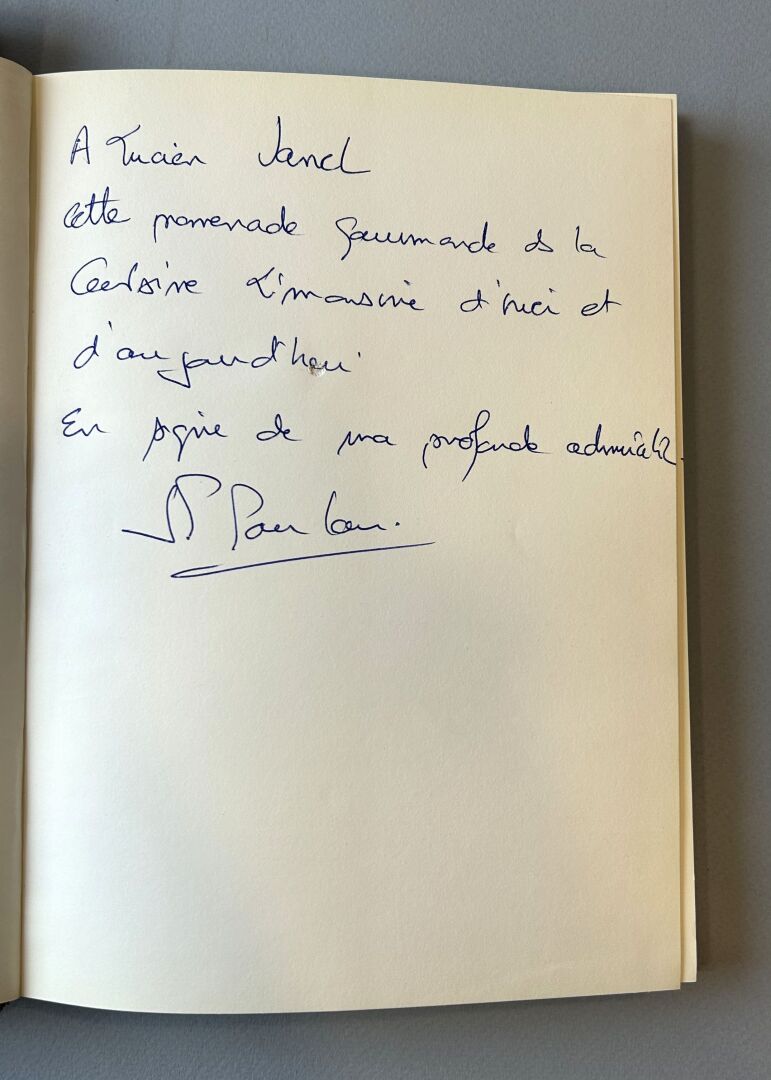 A Lucien Vanel
cette promenade gourmande ds la
Cuisine Limousine d'hier et
d'aujourd'hui.
En signe de ma profonde admirat°.